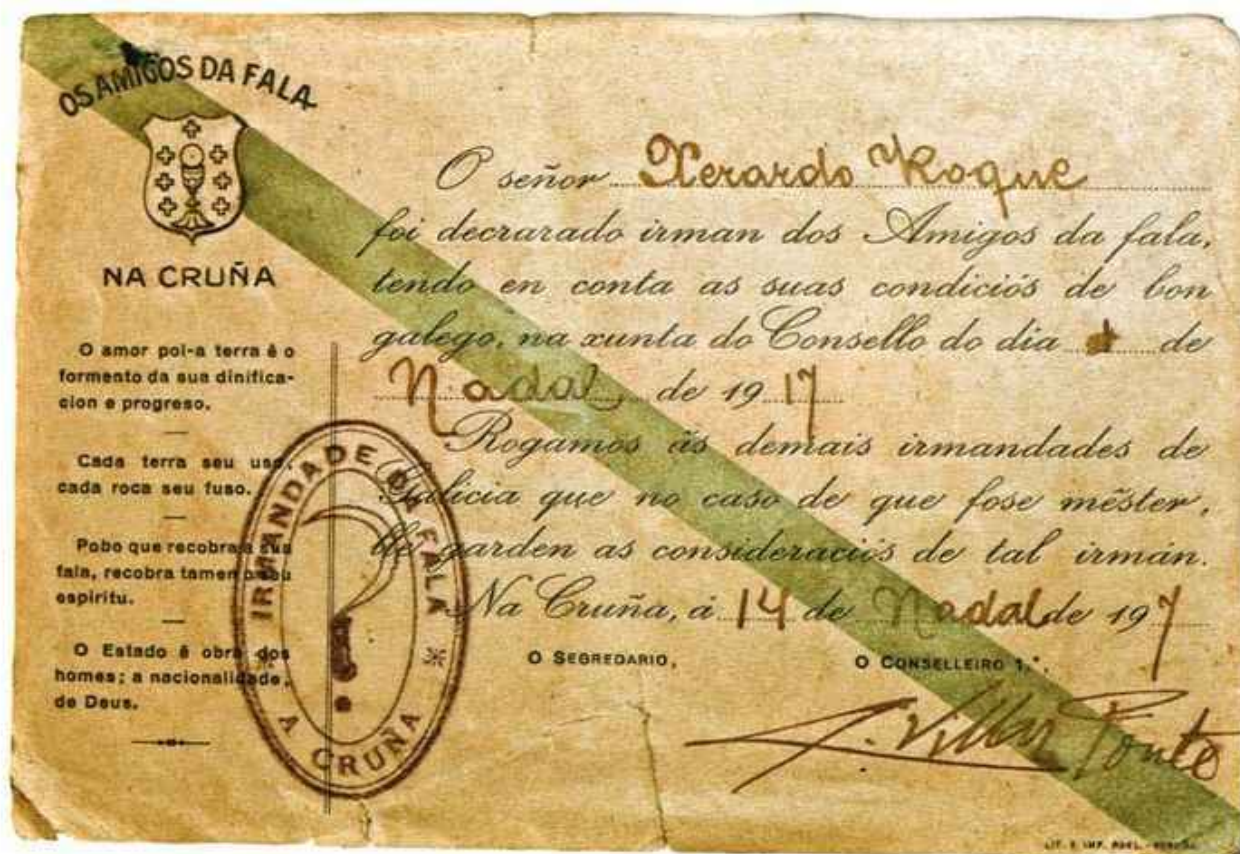 OS AMIGOS DA FALA
NA CRUÑA
O amor pol-a terra é o
formento da sua dinifica-
cion e progreso.
Cada terra seu uso,
cada roca seu fuso.
Pobo que recobra a sua
fala, recobra tamen o seu
espiritu.
O Estado é obra dos
homes; a nacionalidade,
de Deus.
O señor Xerardo Roque
foi decrarado irman dos Amigos da fala,
tendo en conta as suas condiciós de bon
galego, na xunta do Consello do dia 1 de
Nadal de 19 17
Rogamos ás demais irmandades de
Galicia que no caso de que fose méster,
lle garden as consideraciós de tal irmán.
Na Cruña, á 14 de Nadal de 19 7
O SEGREDARIO,
O CONSELLEIRO 1.º
A. Villar Ponte
IRMANDADE DA FALA
A CRUÑA
LIT. E IMP.